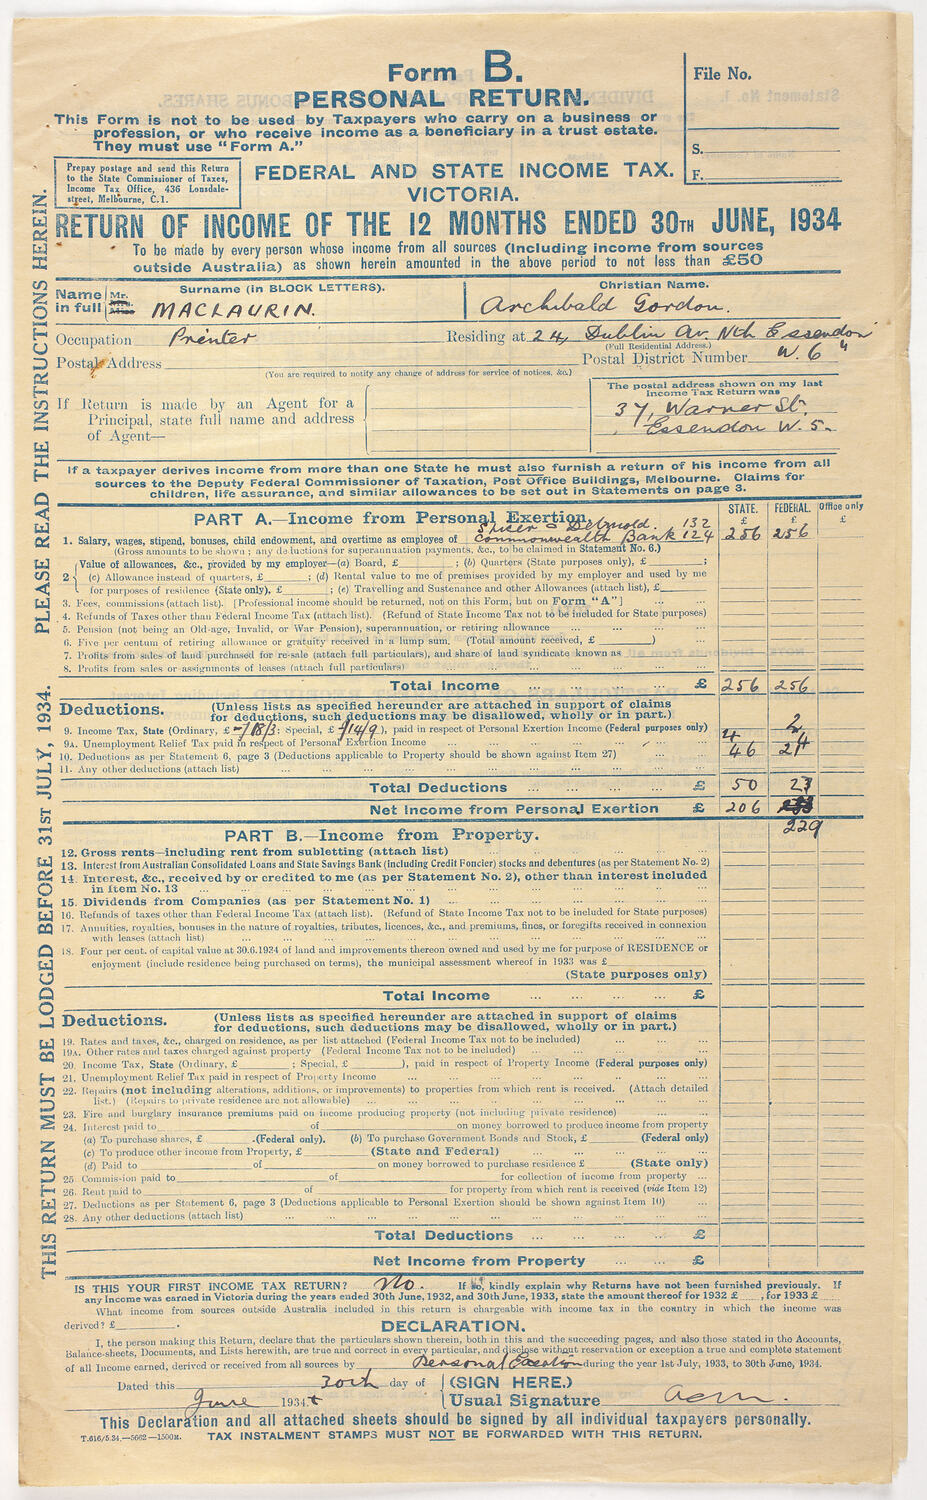 Form B.
PERSONAL RETURN.
This Form is not to be used by Taxpayers who carry on a business or
profession, or who receive income as a beneficiary in a trust estate.
They must use "Form A."
File No.
S.
F.
Prepay postage and send this Return
to the State Commissioner of Taxes,
Income Tax Office, 436 Lonsdale-
street, Melbourne, C.1.
FEDERAL AND STATE INCOME TAX.
VICTORIA.
RETURN OF INCOME OF THE 12 MONTHS ENDED 30TH JUNE, 1934
To be made by every person whose income from all sources (including income from sources
outside Australia) as shown herein amounted in the above period to not less than £50
PLEASE READ THE INSTRUCTIONS HEREIN.
THIS RETURN MUST BE LODGED BEFORE 31ST JULY, 1934.
Surname (in BLOCK LETTERS). Christian Name.
Name in full Mr. MACLAURIN. Archibald Gordon.
Occupation Printer Residing at 24, Dublin Av. Nth Essendon
(Full Residential Address.)
Postal Address Postal District Number W. 6
(You are required to notify any change of address for service of notices, &c.)
If Return is made by an Agent for a
Principal, state full name and address
of Agent—
The postal address shown on my last
Income Tax Return was
37, Warner St.
Essendon W. 5.
If a taxpayer derives income from more than one State he must also furnish a return of his income from all
sources to the Deputy Federal Commissioner of Taxation, Post Office Buildings, Melbourne. Claims for
children, life assurance, and similar allowances to be set out in Statements on page 3.
PART A.—Income from Personal Exertion.
STATE. £ FEDERAL. £ Office only £
Spicer & Detmold. 132
1. Salary, wages, stipend, bonuses, child endowment, and overtime as employee of Commonwealth Bank 124 256 256
(Gross amounts to be shown; any deductions for superannuation payments, &c., to be claimed in Statement No. 6.)
2 Value of allowances, &c., provided by my employer—(a) Board, £ ; (b) Quarters (State purposes only), £ ;
(c) Allowance instead of quarters, £ ; (d) Rental value to me of premises provided by my employer and used by me
for purposes of residence (State only), £ ; (e) Travelling and Sustenance and other Allowances (attach list), £
3. Fees, commissions (attach list). [Professional income should be returned, not on this Form, but on Form "A"]
4. Refunds of Taxes other than Federal Income Tax (attach list). (Refund of State Income Tax not to be included for State purposes)
5. Pension (not being an Old-age, Invalid, or War Pension), superannuation, or retiring allowance
6. Five per centum of retiring allowance or gratuity received in a lump sum. (Total amount received, £ )
7. Profits from sales of land purchased for re-sale (attach full particulars), and share of land syndicate known as
8. Profits from sales or assignments of leases (attach full particulars)
Total Income £ 256 256
Deductions. (Unless lists as specified hereunder are attached in support of claims
for deductions, such deductions may be disallowed, wholly or in part.)
9. Income Tax, State (Ordinary, £ -/18/3; Special, £ 1/14/9), paid in respect of Personal Exertion Income (Federal purposes only) 2
9A. Unemployment Relief Tax paid in respect of Personal Exertion Income 4
10. Deductions as per Statement 6, page 3 (Deductions applicable to Property should be shown against Item 27) 46 21
11. Any other deductions (attach list)
Total Deductions £ 50 27
Net Income from Personal Exertion £ 206
229
PART B.—Income from Property.
12. Gross rents—including rent from subletting (attach list)
13. Interest from Australian Consolidated Loans and State Savings Bank (including Credit Foncier) stocks and debentures (as per Statement No. 2)
14. Interest, &c., received by or credited to me (as per Statement No. 2), other than interest included
in Item No. 13
15. Dividends from Companies (as per Statement No. 1)
16. Refunds of taxes other than Federal Income Tax (attach list). (Refund of State Income Tax not to be included for State purposes)
17. Annuities, royalties, bonuses in the nature of royalties, tributes, licences, &c., and premiums, fines, or foregifts received in connexion
with leases (attach list)
18. Four per cent. of capital value at 30.6.1934 of land and improvements thereon owned and used by me for purpose of RESIDENCE or
enjoyment (include residence being purchased on terms), the municipal assessment whereof in 1933 was £
(State purposes only)
Total Income £
Deductions. (Unless lists as specified hereunder are attached in support of claims
for deductions, such deductions may be disallowed, wholly or in part.)
19. Rates and taxes, &c., charged on residence, as per list attached (Federal Income Tax not to be included)
19A. Other rates and taxes charged against property (Federal Income Tax not to be included)
20. Income Tax, State (Ordinary, £ ; Special, £ ), paid in respect of Property Income (Federal purposes only)
21. Unemployment Relief Tax paid in respect of Property Income
22. Repairs (not including alterations, additions, or improvements) to properties from which rent is received. (Attach detailed
list.) (Repairs to private residence are not allowable)
23. Fire and burglary insurance premiums paid on income producing property (not including private residence)
24. Interest paid to of on money borrowed to produce income from property
(a) To purchase shares, £ .(Federal only). (b) To purchase Government Bonds and Stock, £ (Federal only)
(c) To produce other income from Property, £ (State and Federal)
(d) Paid to of on money borrowed to purchase residence £ (State only)
25 Commission paid to of for collection of income from property
26. Rent paid to of for property from which rent is received (vide Item 12)
27. Deductions as per Statement 6, page 3 (Deductions applicable to Personal Exertion should be shown against Item 10)
28. Any other deductions (attach list)
Total Deductions £
Net Income from Property £
IS THIS YOUR FIRST INCOME TAX RETURN? No. If so, kindly explain why Returns have not been furnished previously. If
any Income was earned in Victoria during the years ended 30th June, 1932, and 30th June, 1933, state the amount thereof for 1932 £ , for 1933 £
What income from sources outside Australia included in this return is chargeable with income tax in the country in which the income was
derived? £ .
DECLARATION.
I, the person making this Return, declare that the particulars shown therein, both in this and the succeeding pages, and also those stated in the Accounts,
Balance-sheets, Documents, and Lists herewith, are true and correct in every particular, and disclose without reservation or exception a true and complete statement
of all Income earned, derived or received from all sources by Personal Exertion during the year 1st July, 1933, to 30th June, 1934.
Dated this 30th day of (SIGN HERE.)
June 1934 Usual Signature
This Declaration and all attached sheets should be signed by all individual taxpayers personally.
T.616/5.34.—5662—1500M. TAX INSTALMENT STAMPS MUST NOT BE FORWARDED WITH THIS RETURN.